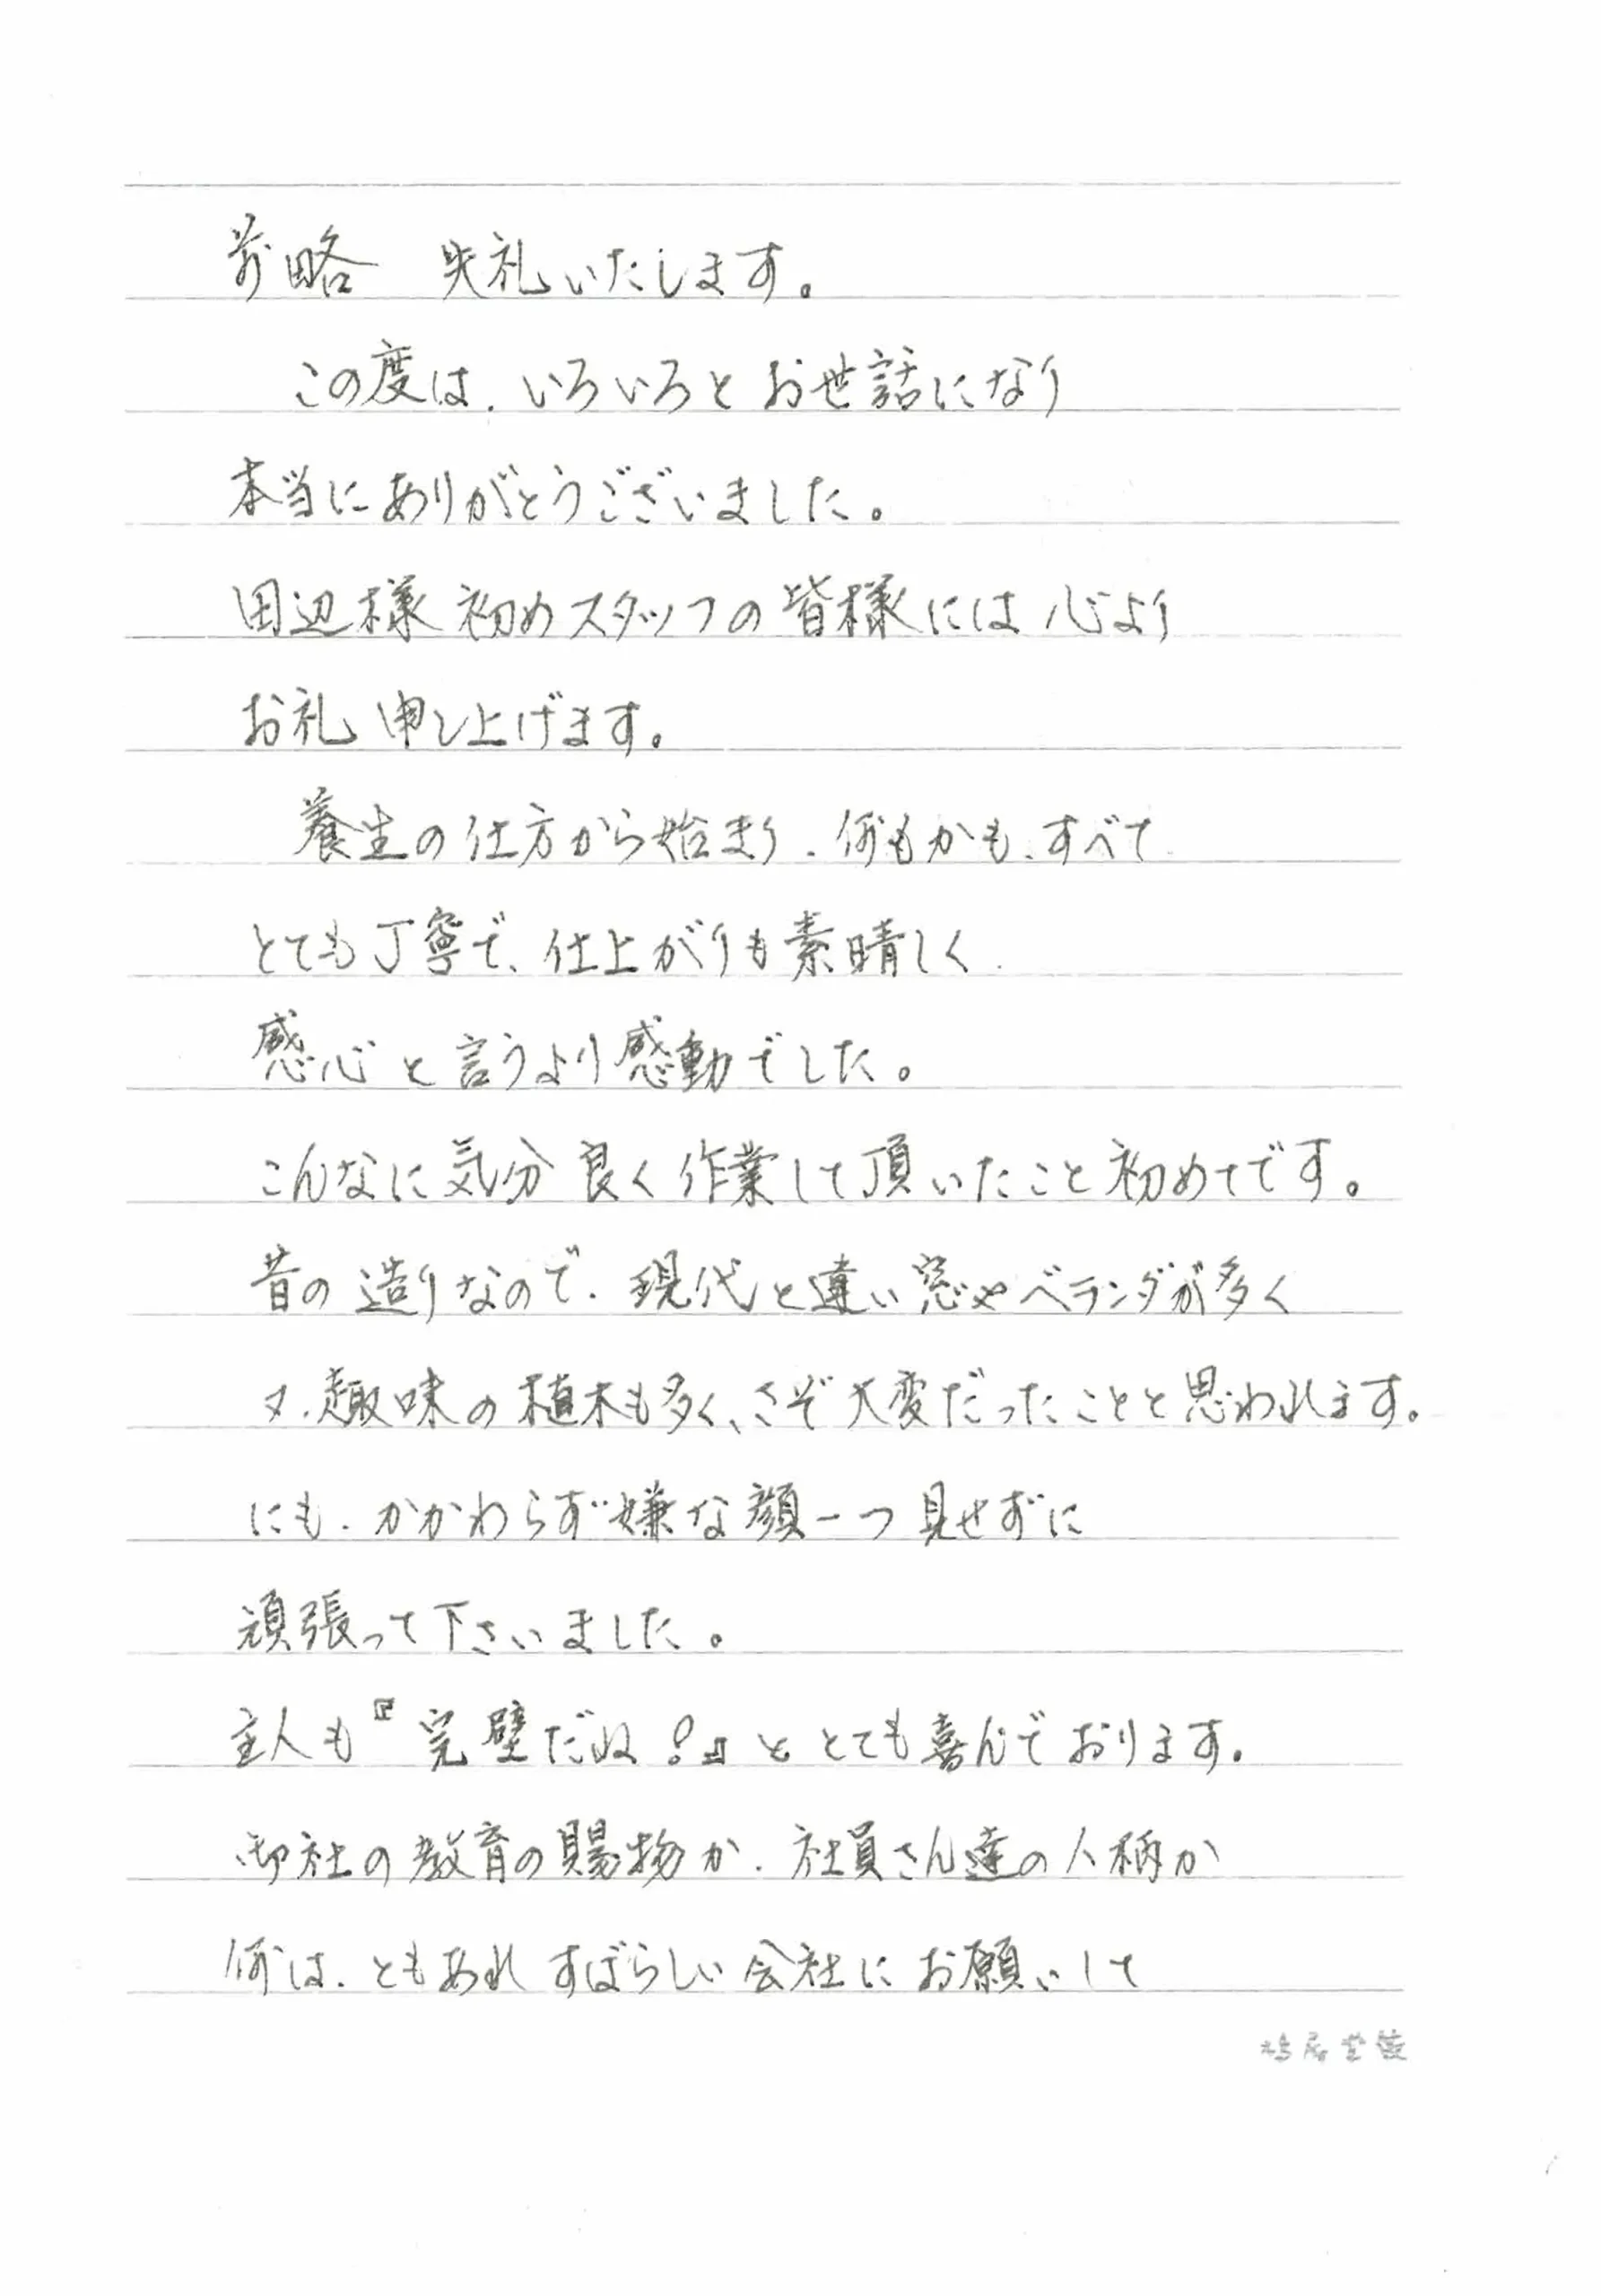 前略 失礼いたします。
この度は、いろいろとお世話になり
本当にありがとうございました。
田辺様初めスタッフの皆様には心より
お礼申し上げます。
養生の仕方から始まり、何もかも、すべて
とても丁寧で、仕上がりも素晴しく
感心と言うより感動でした。
こんなに気分良く作業して頂いたこと初めてです。
昔の造りなので、現代と違い窓やベランダが多く
又、趣味の植木も多く、さぞ大変だったことと思われます。
にも、かかわらず嫌な顔一つ見せずに
頑張って下さいました。
主人も『完璧だね!』ととても喜んでおります。
御社の教育の賜物か、社員さん達の人柄か
何は、ともあれすばらしい会社にお願いして
鳩居堂製